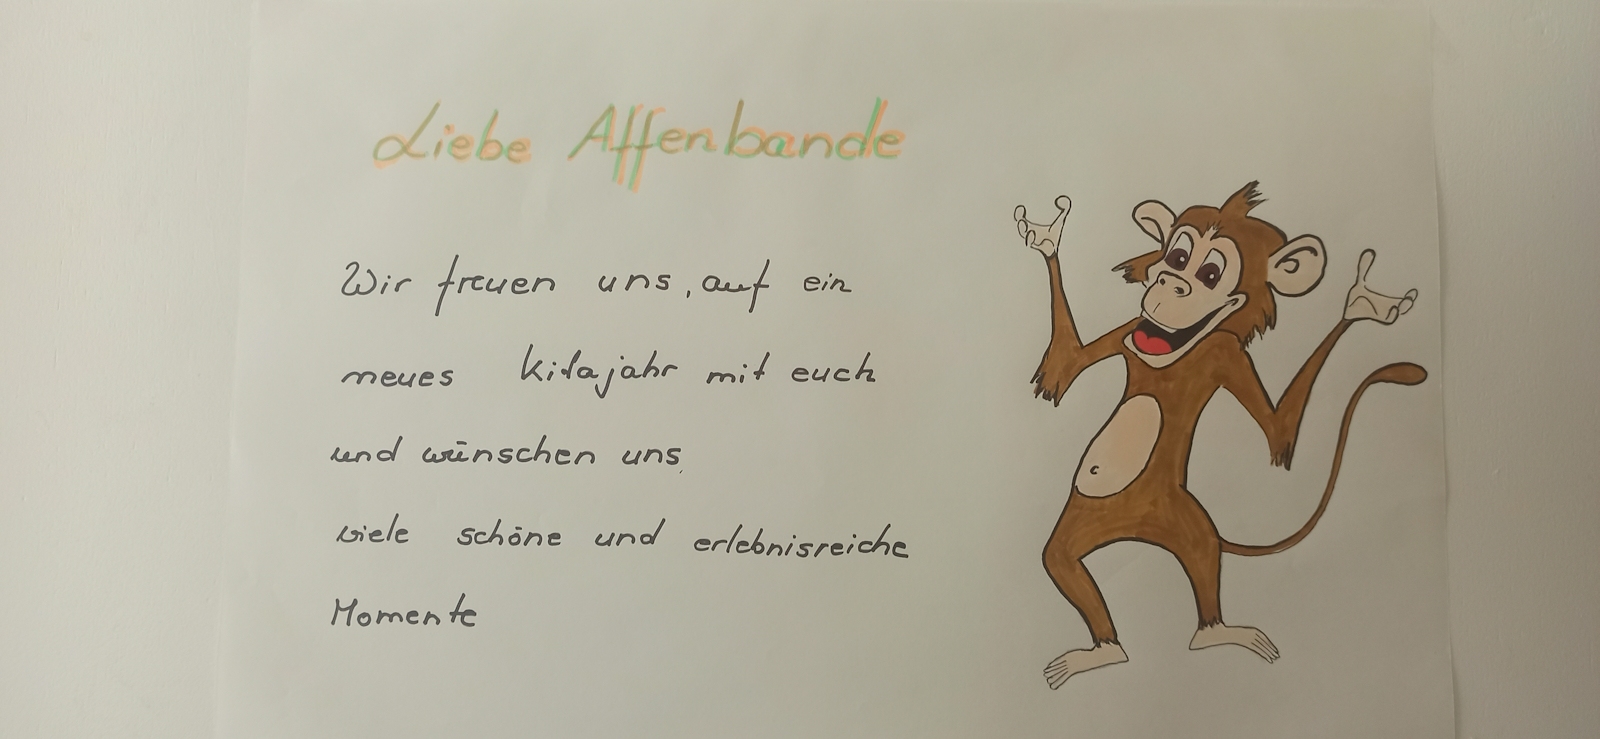 Liebe Affenbande
Wir freuen uns, auf ein
neues kitajahr mit euch
und wünschen uns
viele schöne und erlebnisreiche
Momente